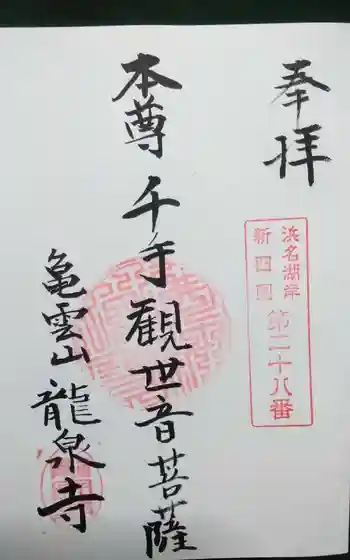 奉拝
浜名湖岸
新四国
第二十八番
本尊 千手觀世音菩薩
亀雲山 龍泉寺